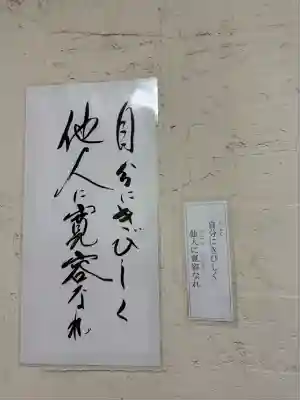 自分にきびしく
他人に寛容なれ
自分にきびしく
他人に寛容なれ